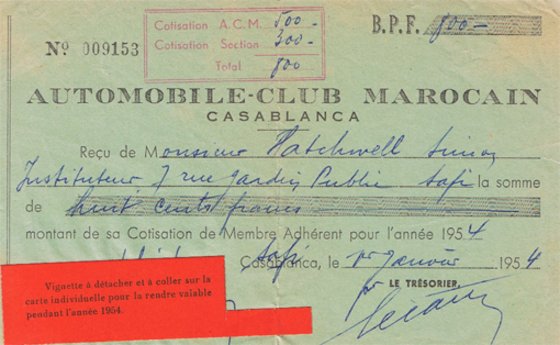 Cotisation A.C.M. 500 -
Cotisation Section 300 -
Total 800
B.P.F. 800 -
Nº 009153
AUTOMOBILE-CLUB MAROCAIN
CASABLANCA
Reçu de Monsieur Hatchwell Simon
Instituteur 7 rue Jardin Public Safi la somme
de huit cents francs
montant de sa Cotisation de Membre Adhérent pour l'année 1954
Safi Casablanca, le 1er Janvier 1954
Vignette à détacher et à coller sur la
carte individuelle pour la rendre valable
pendant l'année 1954.
pr LE TRÉSORIER,